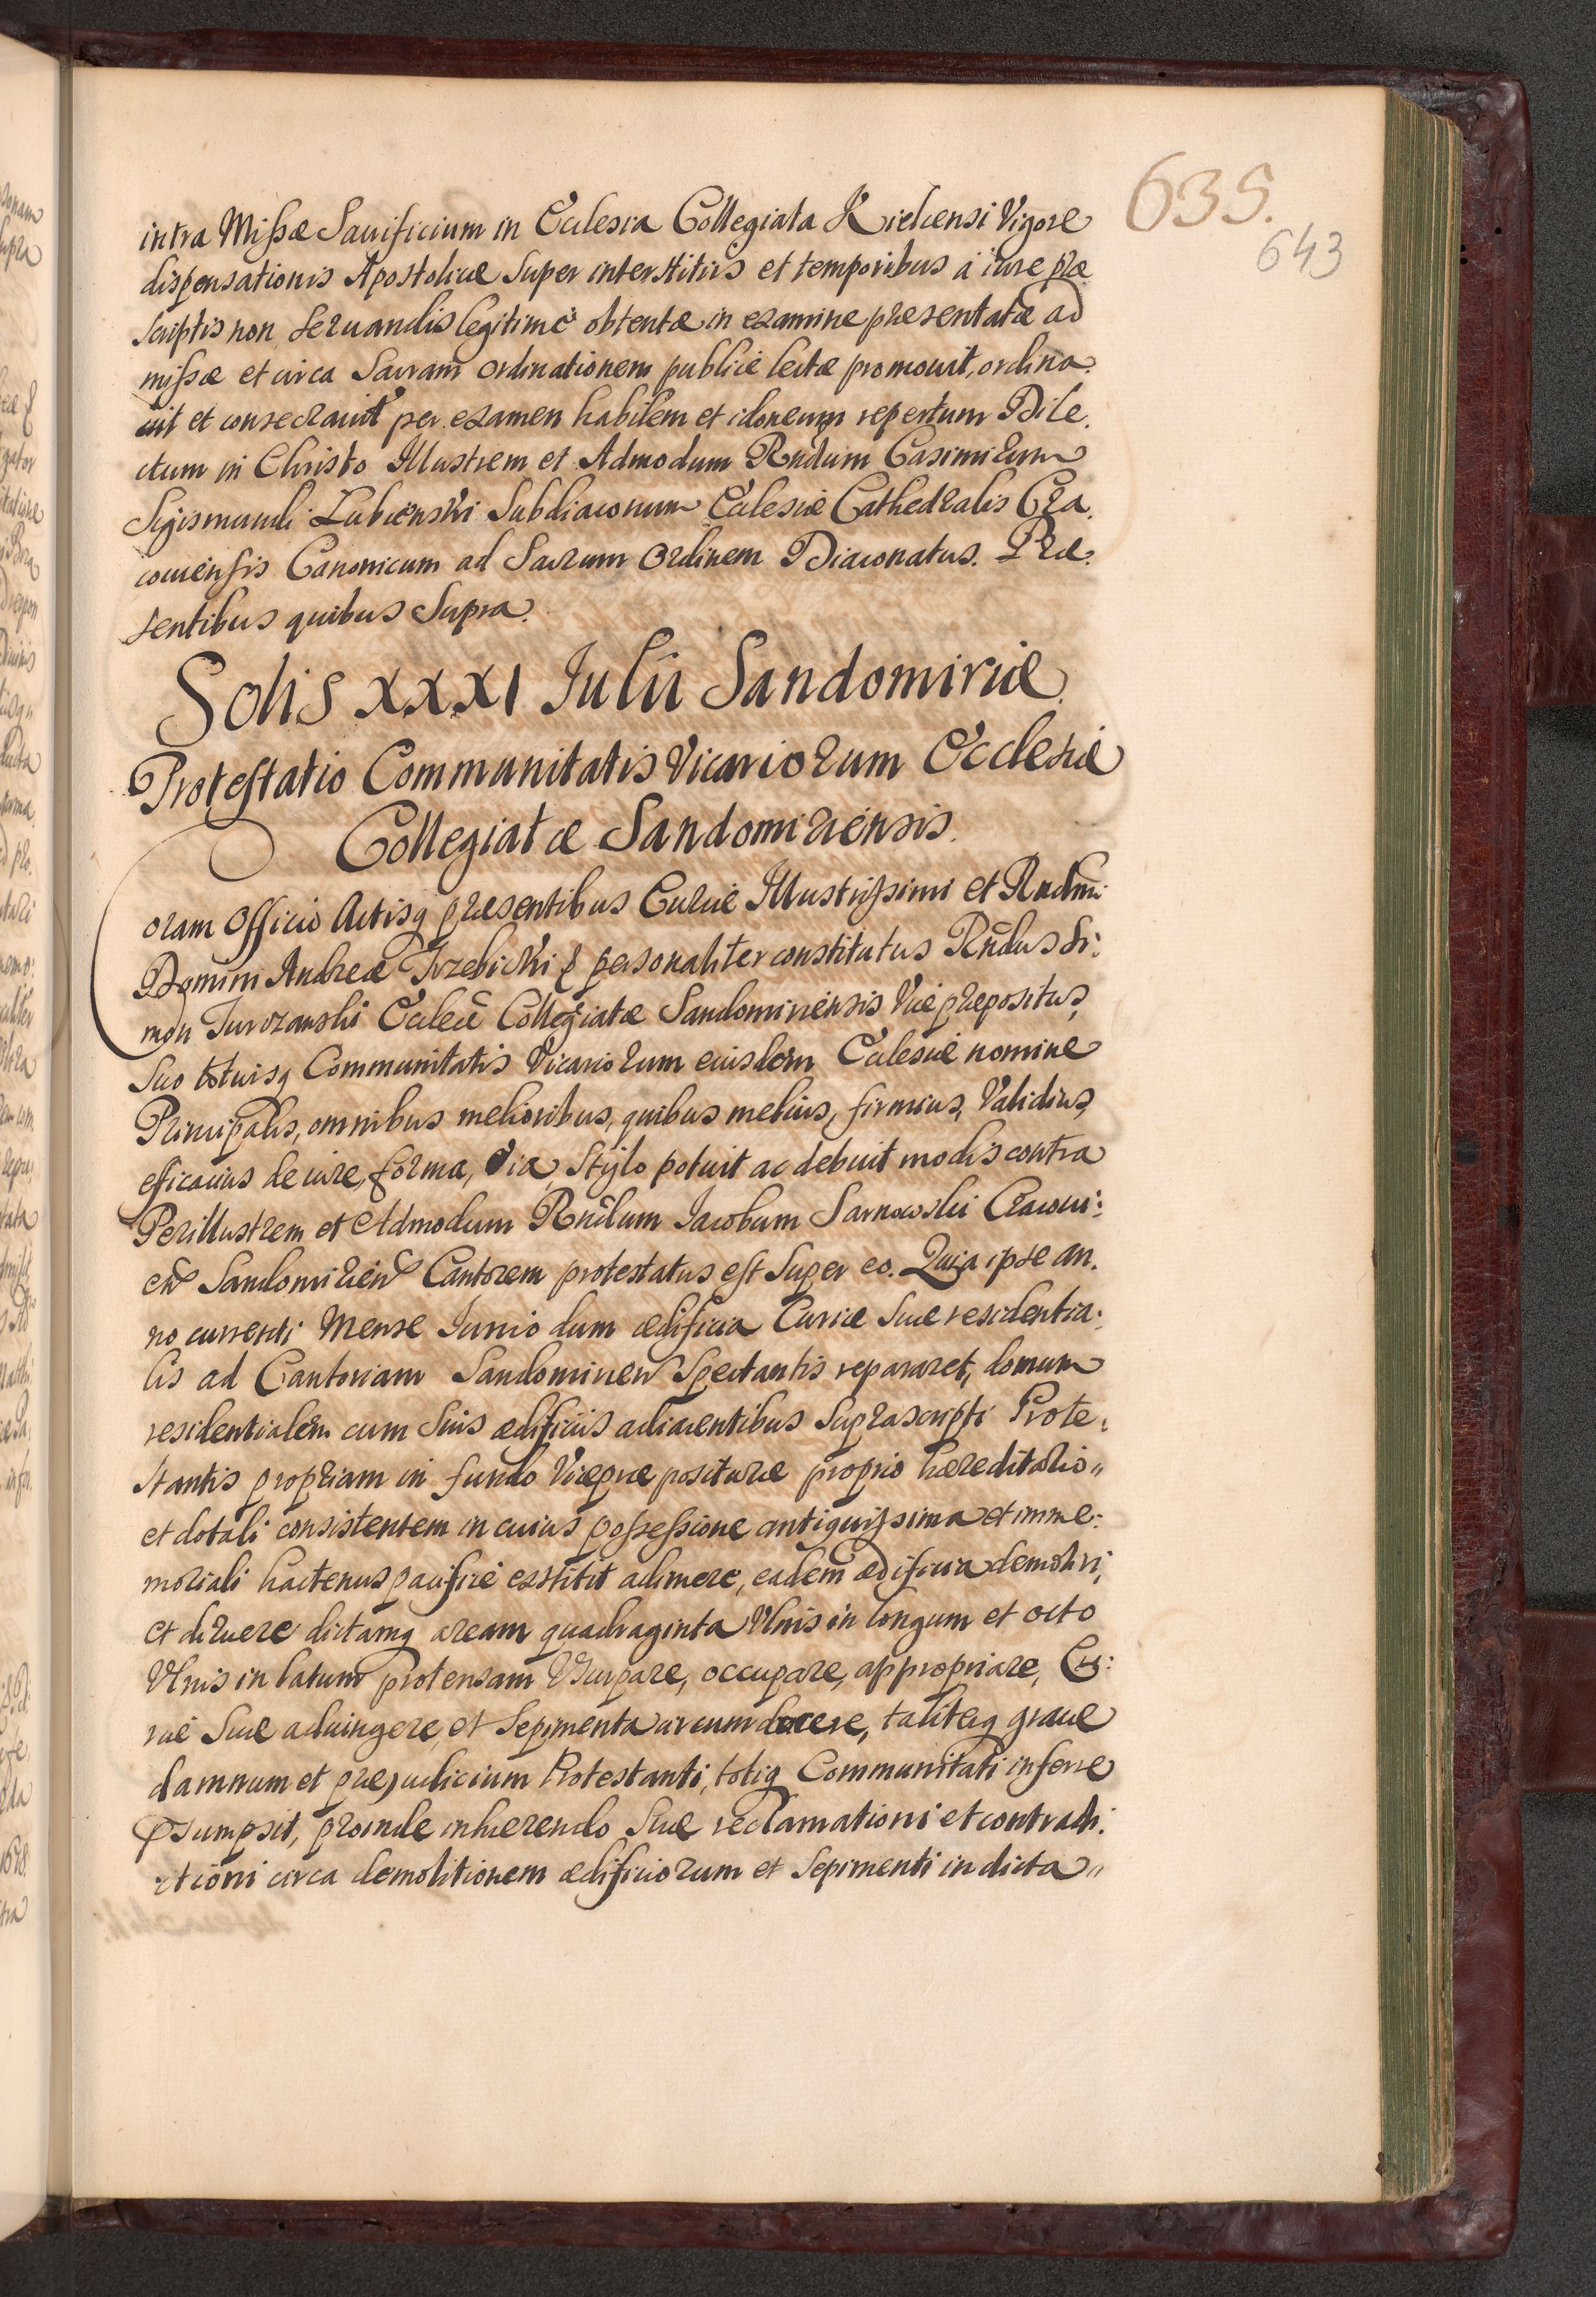 635.
643
intra Missæ Sacrificium in Ecclesia Collegiata Kielcensi Vigore
dispensationis Apostolicæ Super interstitiis et temporibus á iure præ
scriptis non seruandis legitimè obtentæ in examine præsentatæ ad
missæ et circa Sacram ordinationem publicè lectæ promouit, ordina
uit et consecrauit per examen habilem et idoneum repertum Dile,
ctum in Christo Illustrem et Admodum Rndum Casimirum
Sigismundi Lubienski Subdiaconum Ecclesiæ Cathedralis Cra,
couiensis Canonicum ad Sacrum Ordinem Diaconatus. Præ,
sentibus quibus Supra.
Solis XXXI Iulii Sandomiriæ.
Protestatio Communitatis Vicariorum Ecclesiæ
Collegiatæ Sandomiriensis.
Coram Officio Actisq præsentibus Curiæ Illustrissimi et Rndmi
Domini Andreæ Trzebicki & personaliter constitutus Rndus Si:
mon Turozanski Eccleæ Collegiatæ Sandomiriensis Vicæpræpositus,
Suo totiusq Communitatis Vicariorum eiusdem Ecclesiæ nomine
Principalis, omnibus melioribus, quibus melius, firmius, Validius,
efficacius de iure, forma, Via, Stylo potuit ac debuit modis contra
Perillustrem et Admodum Rndum Iacobum Sarnowski Cracoui:
en Sandomirien Cantorem protestatus est Super eo. Quia ipse an,
no currenti Mense Iunio dum ædificia Curiæ Suæ residentia:
lis ad Cantoriam Sandomirien Spectantis repararet, domum
residentialem cum Suis ædificiis adiacentibus Suprascripti Prote,
stantis propriam in fundo Vicepræpositurae proprio hæreditario„
et dotali consistentem in cuius possessione antiquissima et imme:
moriali hactenus pacificè exstitit adimere, eadem ædificia demoliri,
et diruere dictamq aream quadraginta Vlnis in longum et octo
Vlnis in latum protensam Vsurpare, occupare, appropriare, Cu:
riæ Suæ adiungere, et Sepimenta circumducere, taliterq graue
damnum et præjudicium Protestanti, totiq Communitati inferre
præsumpsit, proinde inhærendo Suæ reclamationi et contradi:
ctioni circa demolitionem ædificiorum et Sepimenti in dicta„